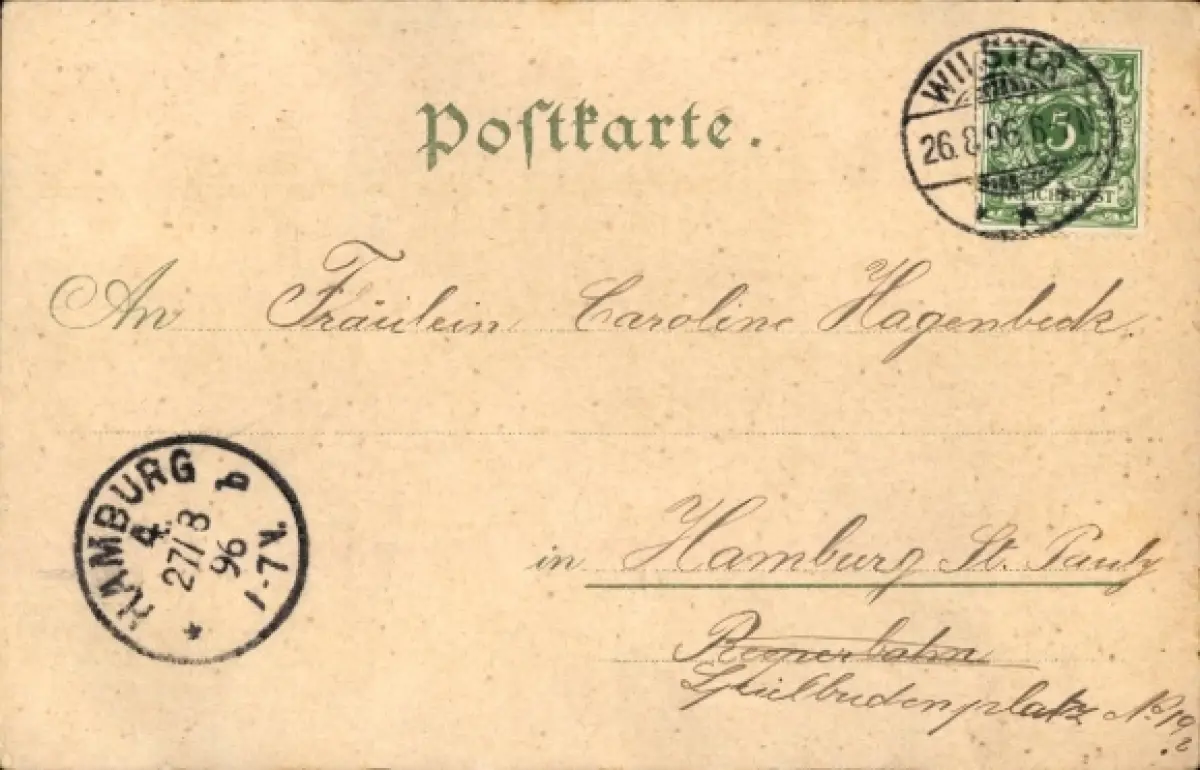 Postkarte.
WILSTER
26.8.96. 6
5
REICHSPOST
An Fräulein Caroline Hagenbeck.
HAMBURG
4.
27/8
96
1-7 V.
in Hamburg St. Pauly
Reeperbahn
Spielbudenplatz No 19
?